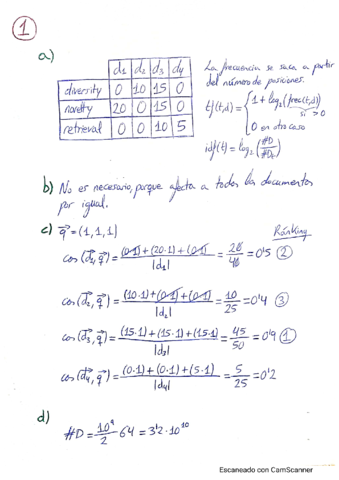 1
a)
d1 d2 d3 d4
diversity 0 10 15 0
novelty 20 0 15 0
retrieval 0 0 10 5
La frecuencia se saca a partir
del número de posiciones.
tf(t,d) = { 1 + log2(frec(t,d)) si > 0
0 en otro caso
idf(t) = log2 (#D / #Dt)
b) No es necesario, porque afecta a todos los documentos
por igual.
c) q = (1, 1, 1)
Ránking
cos(d1, q) = (0·1) + (20·1) + (0·1) / |d1| = 20 / 40 = 0'5 2
cos(d2, q) = (10·1) + (0·1) + (0·1) / |d2| = 10 / 25 = 0'4 3
cos(d3, q) = (15·1) + (15·1) + (15·1) / |d3| = 45 / 50 = 0'9 1
cos(d4, q) = (0·1) + (0·1) + (5·1) / |d4| = 5 / 25 = 0'2
d)
#D = 10^9 / 2 · 64 = 3'2 · 10^10
Escaneado con CamScanner